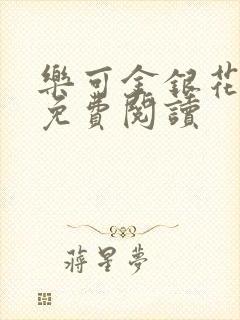 樂可金銀花
免費閱讀
蔣星夢